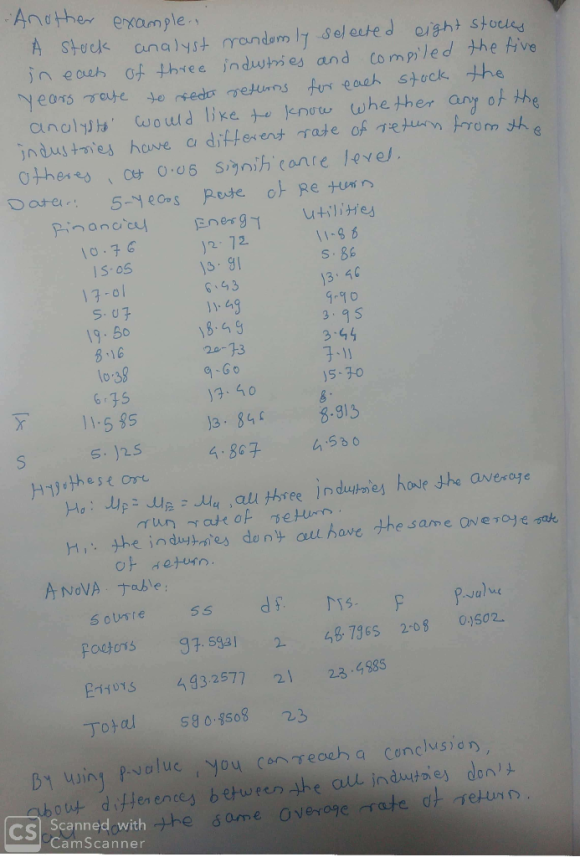 Another example..
A stock analyst randomly selected eight stocks
in each of three industries and compiled the five
years rate to returns for each stock the
analysts' would like to know whether any of the
industries have a different rate of return from the
otheres, at 0.05 significance level.
Data:- 5-years Rate of Return
Financial Energy Utilities
10.76 12.72 11.88
15.05 13.91 5.86
17.01 6.43 13.46
5.07 11.49 9.90
19.50 18.49 3.95
8.16 20-73 3.44
10.38 9.60 7.11
6.75 17.40 15.70
x̄ 11.585 13.846 8.
8.913
S 5.125 4.867 4.530
Hypothese are
H₀: μF = μE = μu, all three industries have the average
run rate of return.
H₁: the industries don't all have the same average rate
of return.
ANOVA Table:
Source SS df. Ms. F P-value
Factors 97.5931 2 48.7965 2.08 0.1502
Errors 493.2577 21 23.4885
Total 590.8508 23
By using P-value, you can reach a conclusion,
about differences between the all industries don't
the same average rate of return.
CS Scanned with
CamScanner